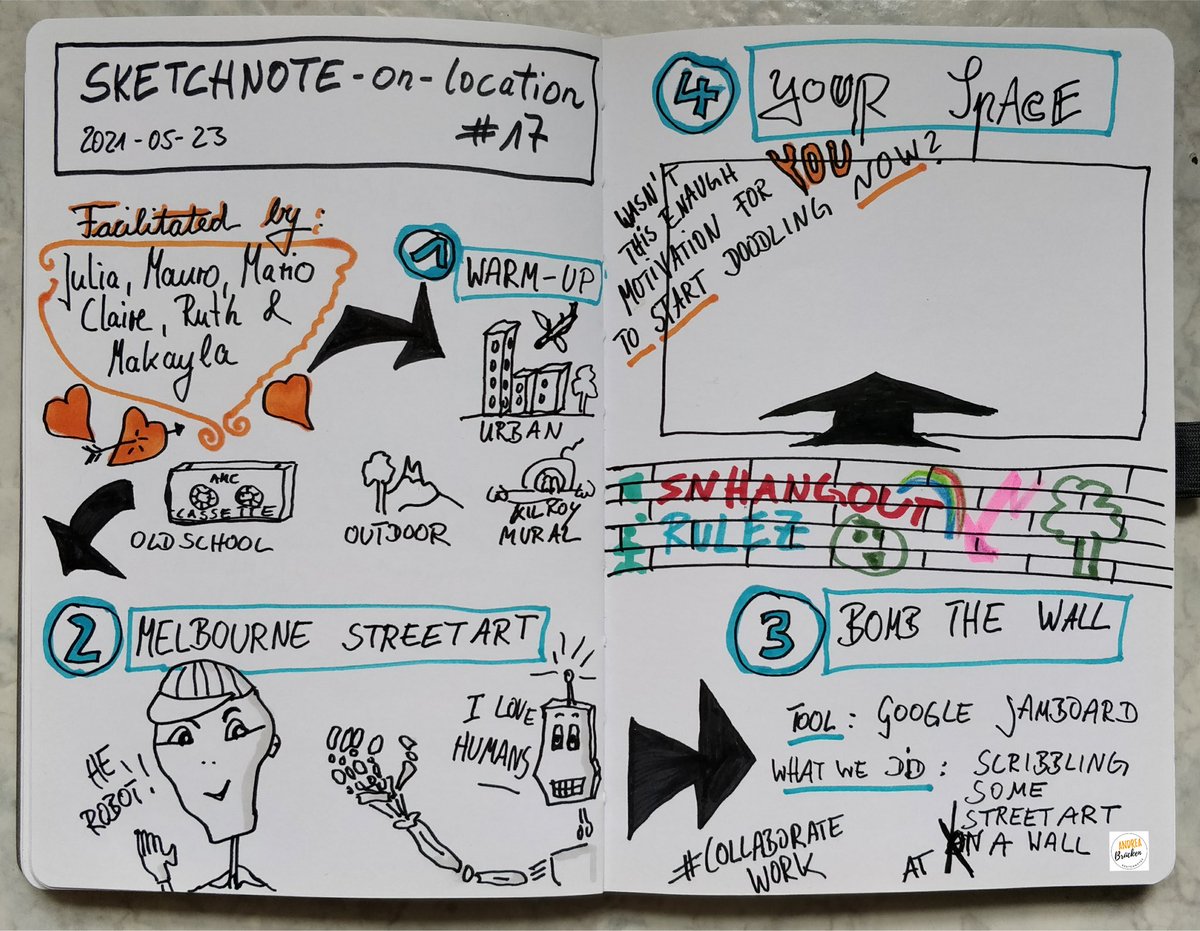 SKETCHNOTE-on-location
2021-05-23 #17
Facilitated by:
Julia, Mauro, Mario
Claire, Ruth &
Makayla
1 WARM-UP
URBAN
AMC
CASSETTE
OLDSCHOOL
OUTDOOR
KILROY
MURAL
2 MELBOURNE STREETART
HE,
ROBOT!
I LOVE
HUMANS
3 BOMB THE WALL
TOOL: GOOGLE JAMBOARD
WHAT WE DID: SCRIBBLING
SOME
STREETART
AT ON A WALL
#COLLABORATE
WORK
SNHANGOUT
RULEZ
4 YOUR SPACE
WASN'T
THIS ENAUGH
MOTIVATION FOR YOU
TO START DOODLING NOW?
ANDREA
Brücken